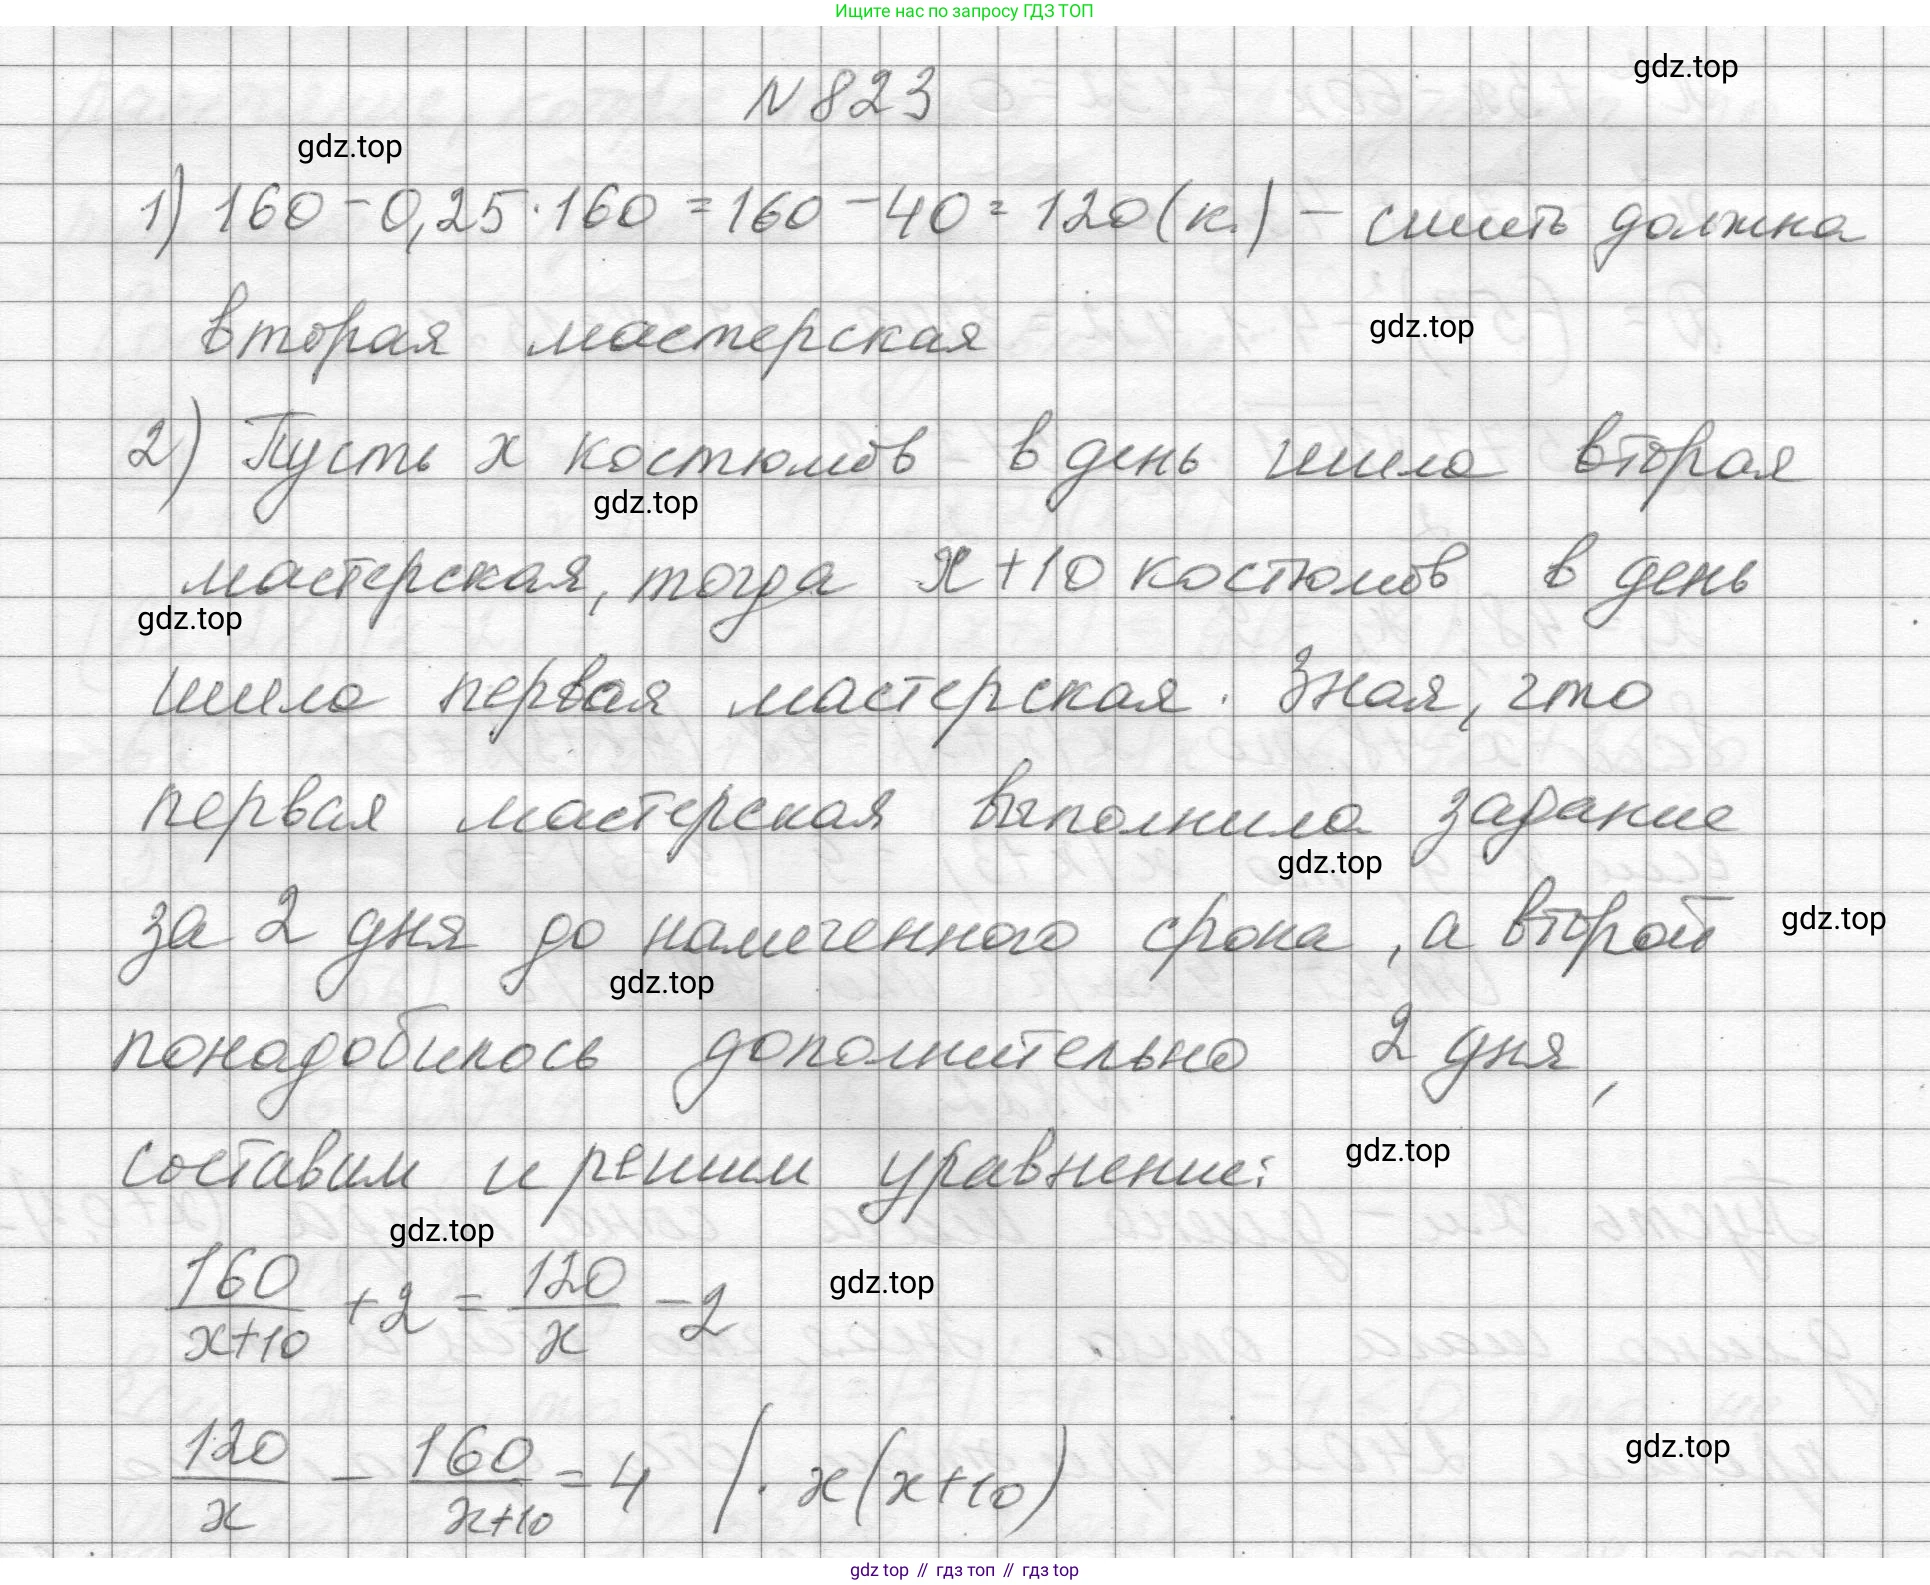 Ищите нас по запросу ГДЗ ТОП
gdz.top
N 823
gdz.top
1) 160 - 0,25 · 160 = 160 - 40 = 120 (к.) - сшить должна
вторая мастерская
gdz.top
2) Пусть x костюмов в день шила вторая
gdz.top
мастерская, тогда x+10 костюмов в день
gdz.top
шила первая мастерская. Зная, что
первая мастерская выполнила задание
gdz.top
за 2 дня до намеченного срока, а второй
gdz.top
gdz.top
понадобилось дополнительно 2 дня,
составим и решим уравнение:
gdz.top
gdz.top
160/(x+10) + 2 = 120/x - 2
gdz.top
120/x - 160/(x+10) = 4 | · x(x+10)
gdz.top
gdz top // гдз топ // гдз top